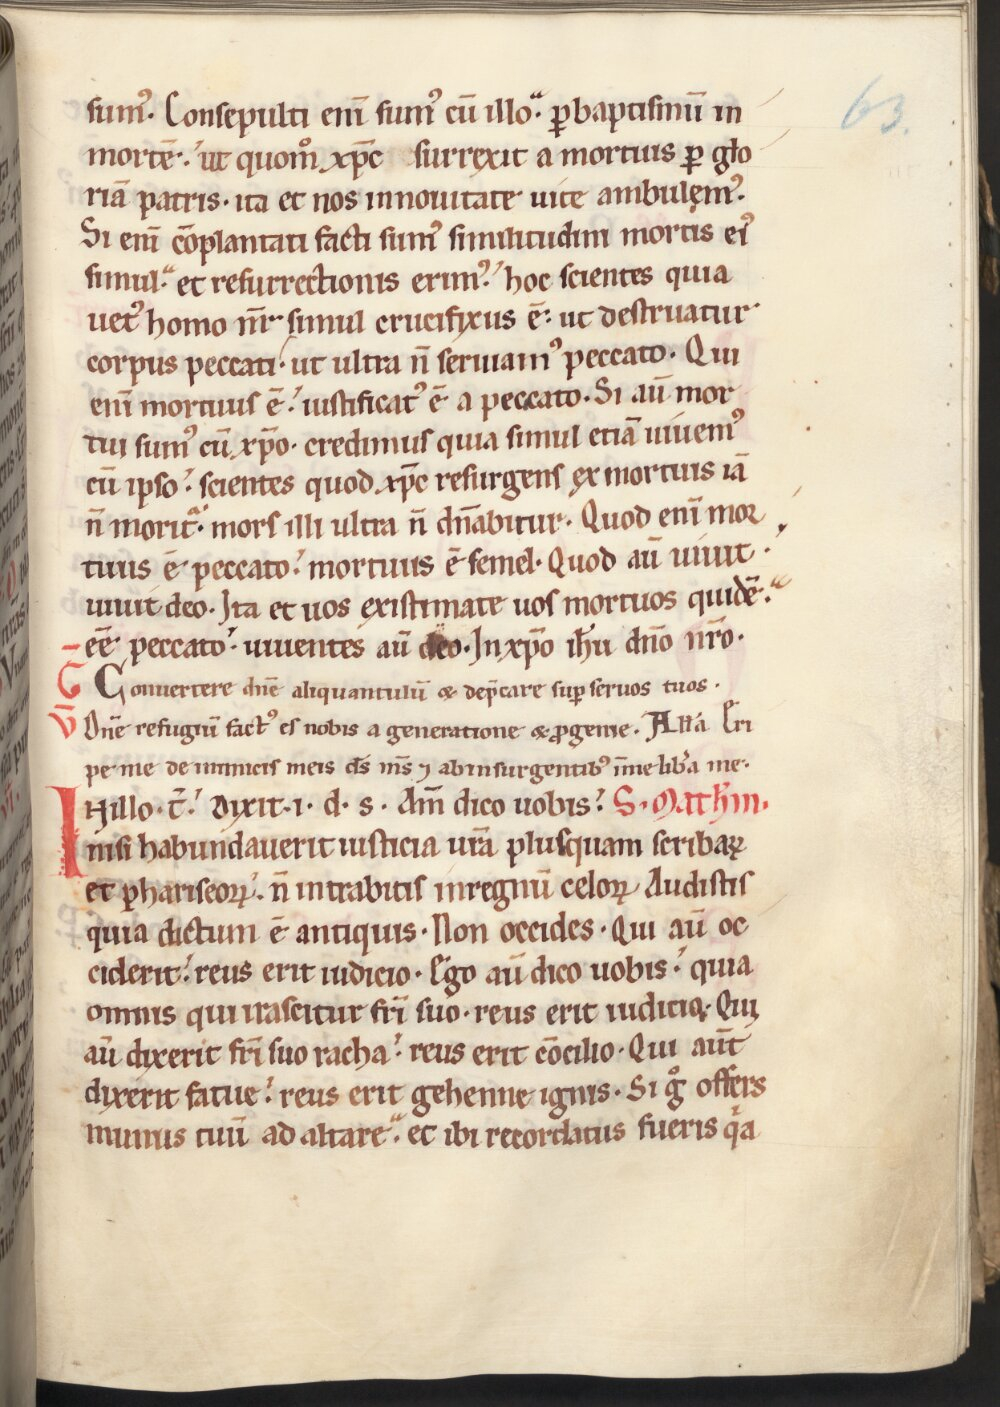 63.
sum᷒. Consepulti eni̅ sum᷒ cu̅ illo. ꝑ baptismu̅ in
morte̅. ut quom̊ xp̅c surrexit a mortuis ꝑ glo
ria̅ patris. ita et nos innouitate uite ambulęm᷒.
Si eni̅ co̅plantati facti sum᷒ similitudini mortis ei᷒
simul. et resurrectionis erim᷒. hoc scientes quia
uet᷒ homo nr̅ simul crucifixus e̅. ut destruatur
corpus peccati. ut ultra n̅ seruiam᷒ peccato. Qui
eni̅ mortuus e̅. iustificat᷒ e̅ a peccato. Si au̅ mor
tui sum᷒ cu̅ xp̅o. credimus quia simul etia̅ uiuem᷒
cu̅ ipso. scientes quod xp̅c resurgens ex mortuis ia̅
n̅ morit᷑. mors illi ultra n̅ dn̅abitur. Quod eni̅ mor
tuus e̅ peccato. mortuus e̅ semel. Quod au̅ uiuit.
uiuit deo. Ita et uos existimate uos mortuos quide̅.
ee̅ peccato. uiuentes au̅ deo. In xp̅o ih̅u dn̅o nr̅o.
G Conuertere dn̅e aliquantulu̅ & dep̅care sup̅ seruos tuos.
V̅ Dn̅e refugiu̅ fact᷒ es nobis a generatione & ꝓgenie. All̅a Eri
pe me de inimicis meis ds̅ ms̅ ⁊ ab insurgentib᷒ i̅me lib̅a me.
IN illo. t̅. Dixit. i. d. s. Am̅ dico uobis. S. Mathm̅.
nisi habundauerit iusticia ur̅a plusquam scribaꝝ
et phariseoꝝ. n̅ intrabitis inregnu̅ celoꝝ Audistis
quia dictum e̅ antiquis. Non occides. Qui au̅ oc
ciderit. reus erit iudicio. Ego au̅ dico uobis. quia
omnis qui irascitur fr̅i suo. reus erit iudicio. Qui
au̅ dixerit fr̅i suo racha. reus erit co̅cilio. Qui aut̅
dixerit fatue. reus erit gehenne ignis. Si g̊ offers
munus tuu̅ ad altare. et ibi recordatus fueris qͣa